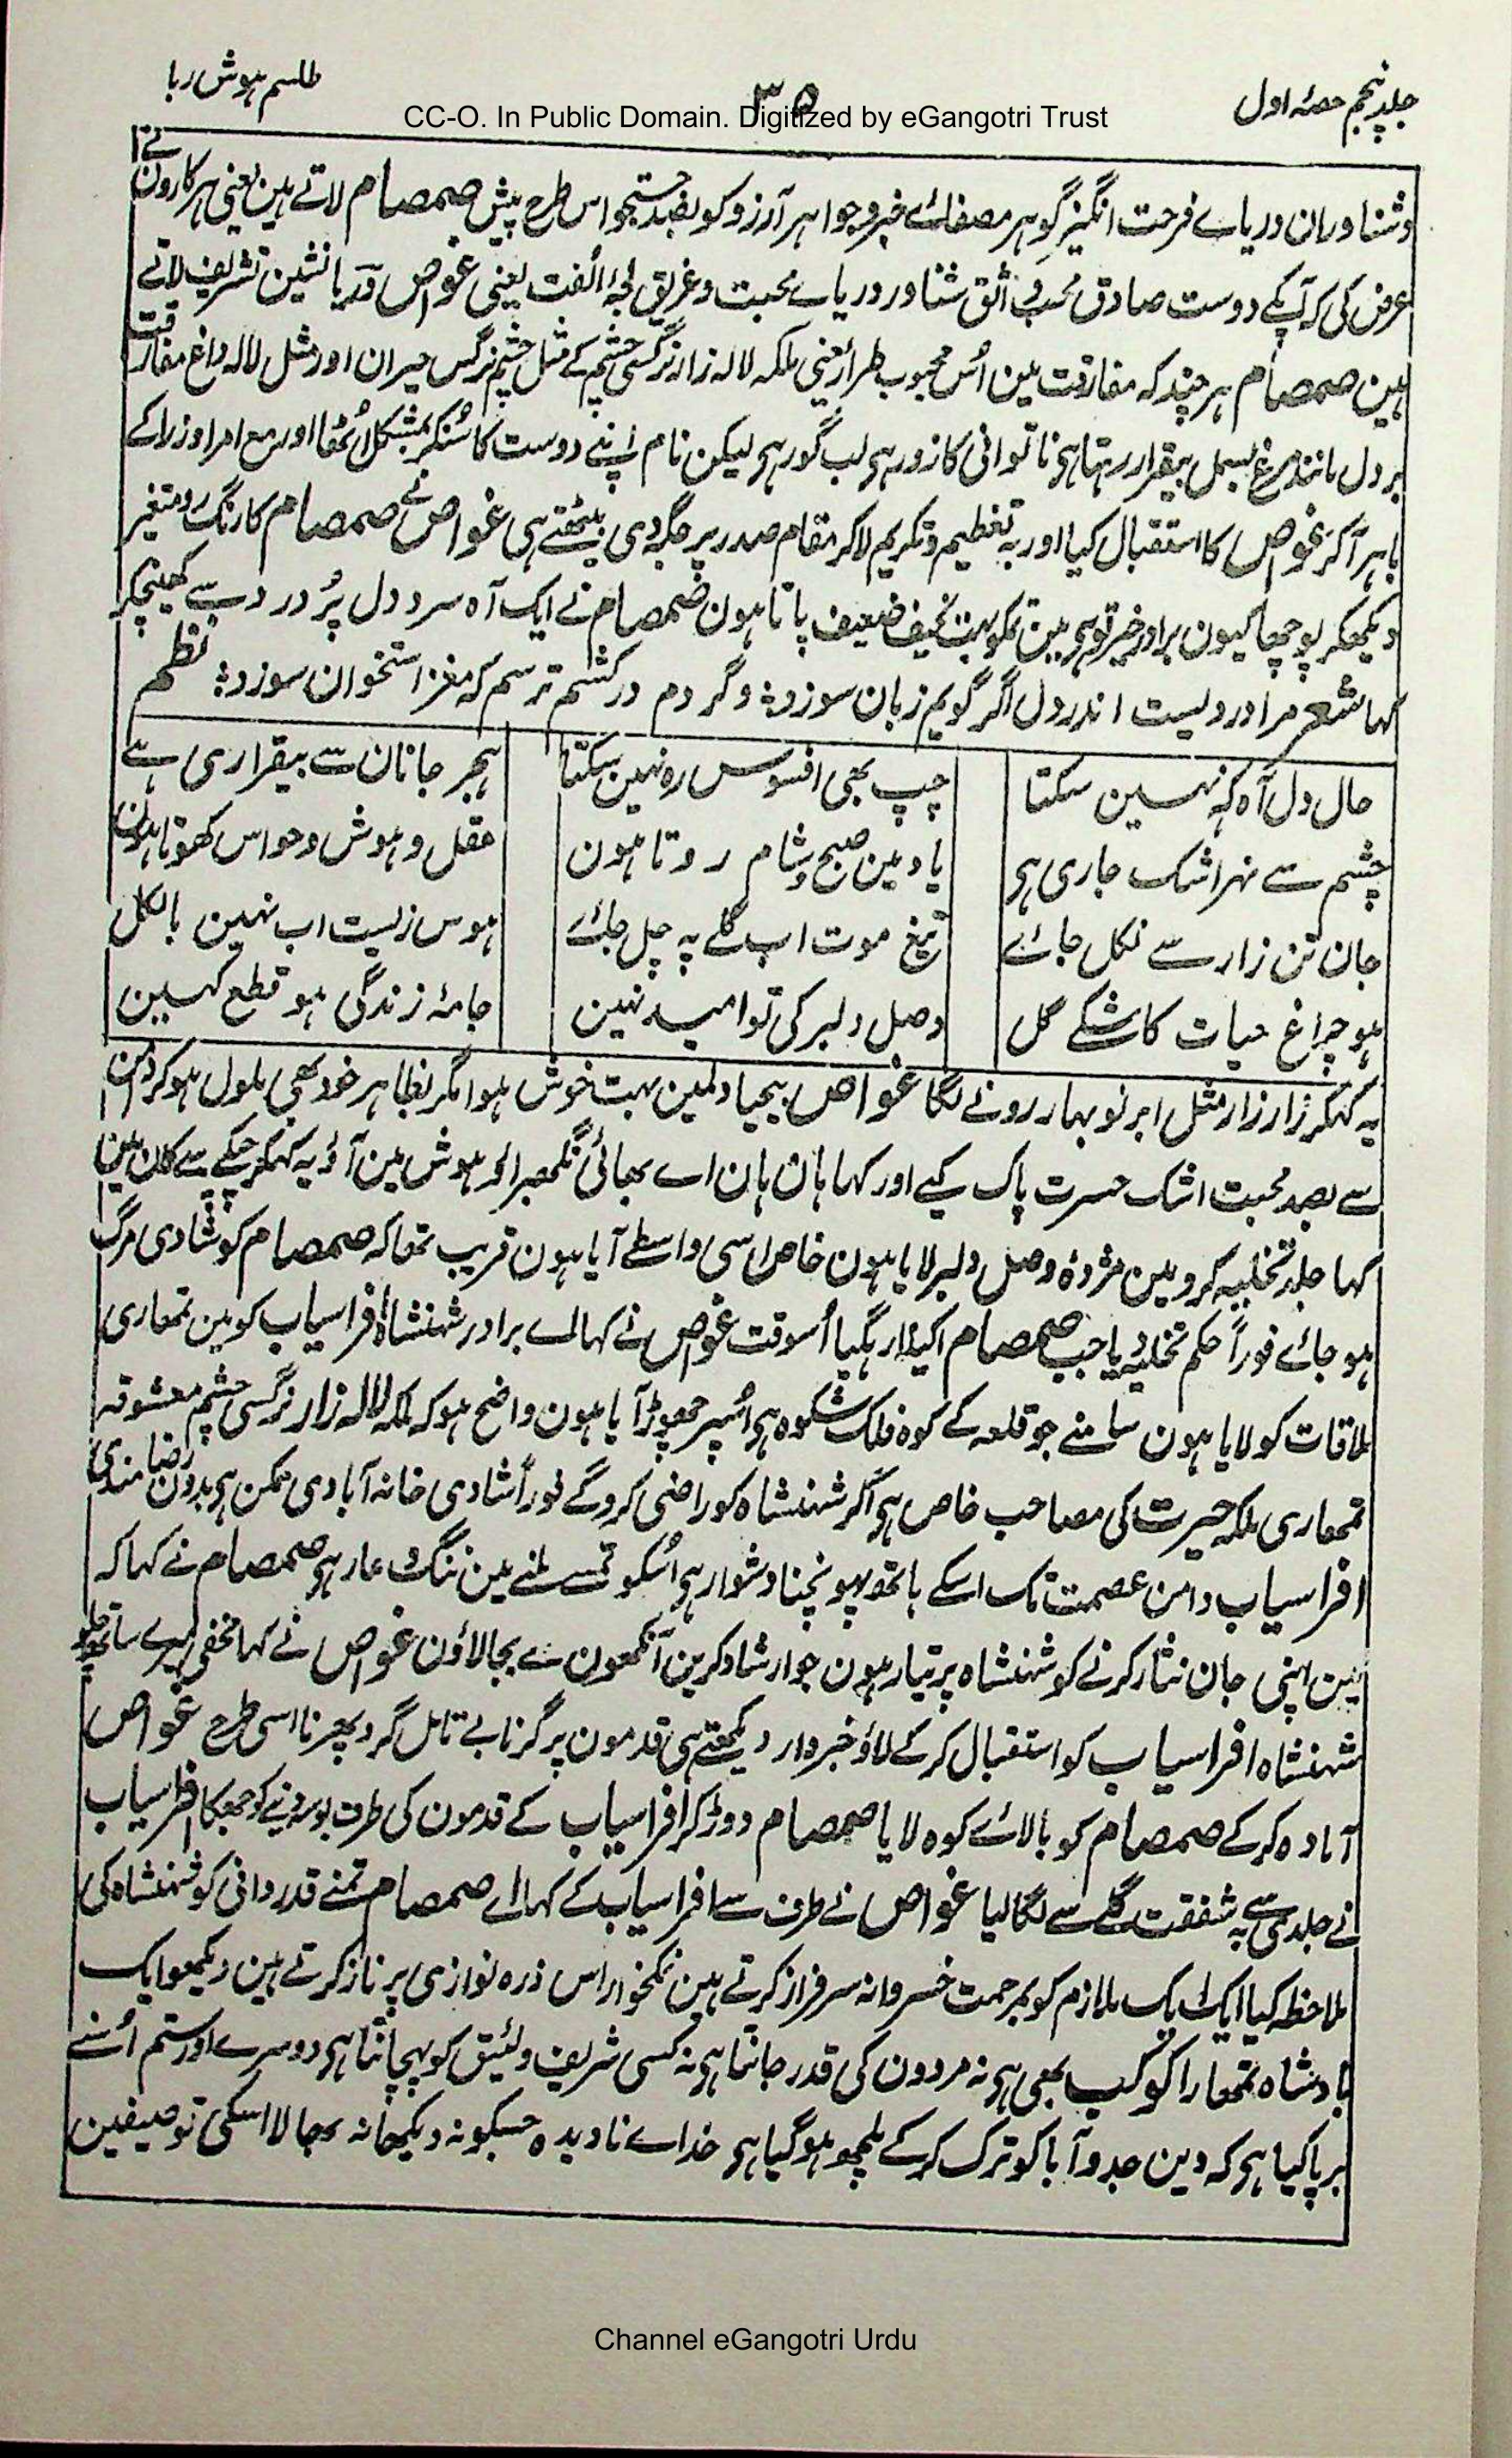 جلد پنجم حصۂ اول
۳۵
طلسم ہوش ربا
CC-O. In Public Domain. Digitized by eGangotri Trust
وشناوران دریاے فرحت انگیز گوہر مصفاے خبر و جواہر آرزو کو بصد جستجو اس طرح پیش صمصام لاتے ہین یعنی ہرکارون نے آ
عرض کی کہ آپکے دوست صادق محب واثق شناور دریاے محبت و غریق لجۂ الفت یعنی غواص دریا نشین تشریف لاتے
ہین صمصام ہرچند کہ مفارقت مین اُس محبوب طراز یعنی ملکہ لالہ زار نرگسی چشم کے مثل چشم نرگس حیران اور مثل لالہ داغ مفارقت
بر دل مانند مرغ بسمل بیقرار رہتا ہی ناتوانی کا زور ہی لب گور ہی لیکن نام اپنے دوست کا سُنکر بمشکل اُٹھا اور مع امرا وزرا کے
باہر آکر غواص کا استقبال کیا اور بہ تعظیم و تکریم لاکر مقام صدر پر جگہ دی بیٹھتے ہی غواص نے صمصام کا رنگ رو متغیر
دیکھکر پوچھا کیون برادر خیر تو ہی مین تمکو بہت نحیف ضعیف پاتا ہون صمصام نے ایک آہ سرد دل پُر درد سے کھینچکر
کہا شعر مرا دردیست اندر دل اگر گویم زبان سوزد؞ وگر دم درکشم ترسم کہ مغز استخوان سوزد؞ نظم
حال دل آہ کہہ نہین سکتا چپ بھی افسوس رہ نہین سکتا ہجر جانان سے بیقراری ہے
چشم سے نہر اشک جاری ہی یاد مین صبح و شام روتا ہون عقل و ہوش و حواس کھوتا ہون
جان تن زار سے نکل جائے تیغ موت اب گلے پہ چل جائے ہوس زیست اب نہین بالکل
ہو چراغ حیات کاشکے گل وصل دلبر کی تو امید نہین جامۂ زندگی ہو قطع کہین
یہ کہکر زار زار مثل ابر نو بہار رونے لگا غواص بیحیا دلمین بہت خوش ہوا مگر بظاہر خود بھی ملول ہوکر دامن
سے بصد محبت اشک حسرت پاک کیے اور کہا ہان ہان اے بھائی نگھبراؤ ہوش مین آؤ یہ کہکر چپکے سے کان مین
کہا جلد تخلیہ کرو مین مژدۂ وصل دلبر لایا ہون خاص اسی واسطے آیا ہون قریب تھا کہ صمصام کو شادی مرگ
ہو جائے فوراً حکم تخلیہ دیا جب صمصام اکیلا رہگیا اُسوقت غواص نے کہا اے برادر شہنشاہ افراسیاب کو مین تمھاری
ملاقات کو لایا ہون سامنے جو قلعہ کے کوہ فلک شکوہ ہی اُسپر چھوڑ آیا ہون واضح ہو کہ ملکہ لالہ زار نرگسی چشم معشوقہ
تمھاری ملکہ حیرت کی مصاحب خاص ہی اگر شہنشاہ کو راضی کروگے فوراً شادی خانہ آبادی ممکن ہی بدون رضامندی
افراسیاب دامن عصمت تک اسکے ہاتھ پہونچنا دشوار ہی اُسکو تمسے ملنے مین ننگ و عار ہی صمصام نے کہا کہ
مین اپنی جان نثار کرنے کو شہنشاہ پر تیار ہون جو ارشاد کرین آنکھون سے بجا لاؤن غواص نے کہا مخفی میرے ساتھ چلو
شہنشاہ افراسیاب کو استقبال کر کے لاؤ خبردار دیکھتے ہی قدمون پر گرنا بے تامل گرد پھرنا اسی طرح غواص
آمادہ کر کے صمصام کو بالائے کوہ لایا صمصام دوڑ کر افراسیاب کے قدمون کی طرف بوسہ دینے کو جھکا افراسیاب
نے جلدی سے بہ شفقت گلے سے لگالیا غواص نے طرف سے افراسیاب کے کہا اے صمصام تمنے قدردانی کو شہنشاہ کی
ملاحظہ کیا ایک ایک ملازم کو بمرحمت خسروانہ سرفراز کرتے ہین نمکخوار اس ذرہ نوازی پر ناز کرتے ہین دیکھو ایک
بادشاہ تمھارا کوکب بھی ہی نہ مردون کی قدر جانتا ہی نہ کسی شریف و لئیق کو پہچانتا ہی دوسرے اور ستم اُسنے
برپا کیا ہی کہ دین جد و آبا کو ترک کر کے ملچھ ہوگیا ہی خداے نادیدہ جسکو نہ دیکھا نہ بھالا اسکی توصیفین
Channel eGangotri Urdu